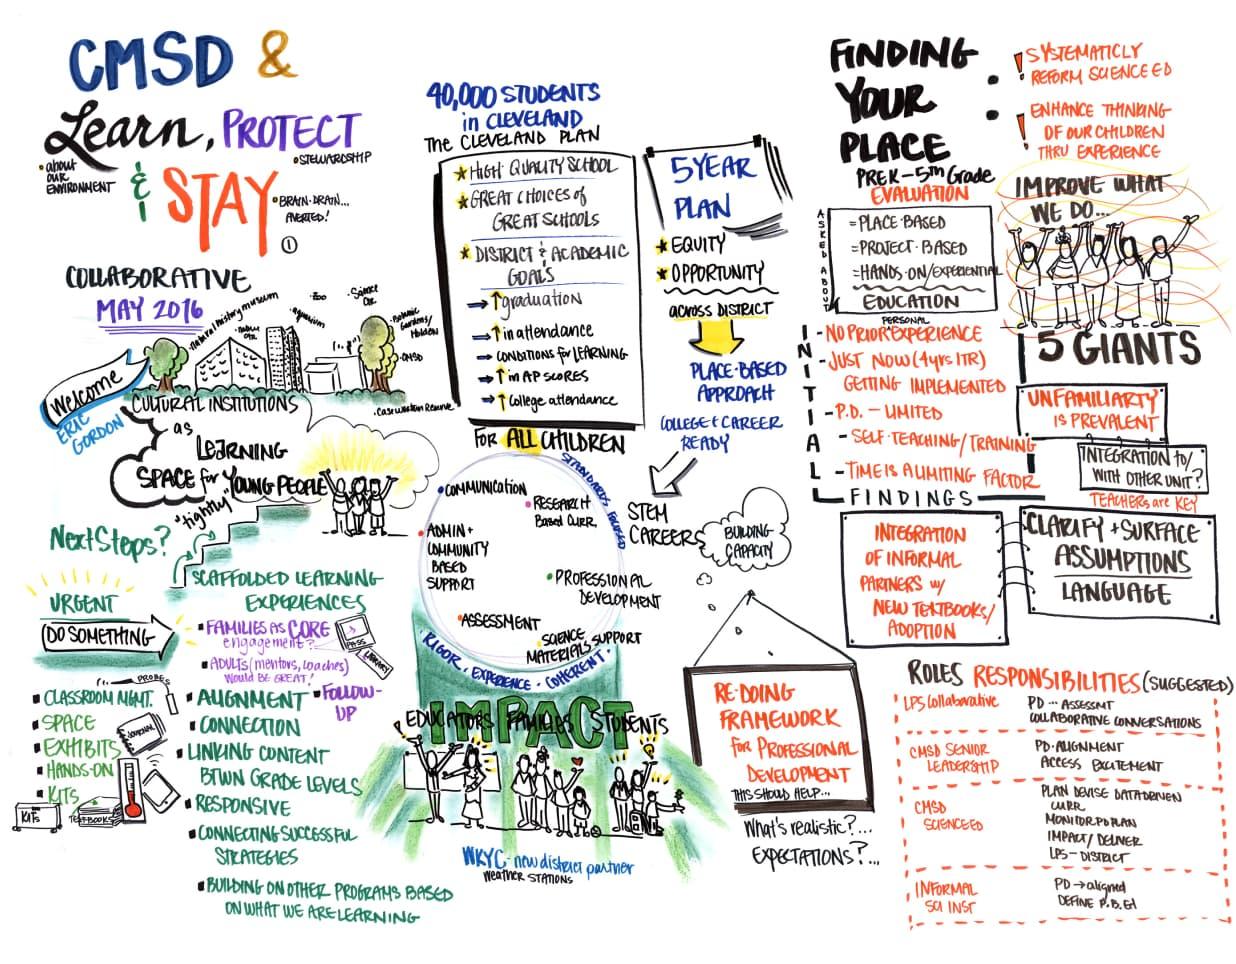 CMSD &
Learn, PROTECT
• about
OUR
ENVIRONMENT
• STEWARDSHIP
& STAY
• BRAIN-DRAIN...
AVERTED!
1
COLLABORATIVE
MAY 2016
Welcome
ERIC
GORDON
• Natural history museum
• Zoo
• Science
Ctr.
• Botanic
Gardens/
Holden
• CMSD
• Case western Reserve
CULTURAL INSTITUTIONS
as
LEARNING
SPACE for YOUNG PEOPLE
"tightly"
Next Steps?
URGENT
DO SOMETHING
SCAFFOLDED LEARNING
EXPERIENCES
• FAMILIES AS CORE
engagement?
• ADULTS (mentors, coaches)
WOULD BE GREAT!
PASS
LIBRARY
• FOLLOW-
UP
PROBES
• CLASSROOM MGMT.
• SPACE
• EXHIBITS
• HANDS-ON
• KITS
JOURNAL
KITS
TEXTBOOKS
• ALIGNMENT
• CONNECTION
• LINKING CONTENT
BTWN GRADE LEVELS
• RESPONSIVE
• CONNECTING SUCCESSFUL
STRATEGIES
• BUILDING ON OTHER PROGRAMS BASED
ON WHAT WE ARE LEARNING
40,000 STUDENTS
in CLEVELAND
THE CLEVELAND PLAN
★ HIGH QUALITY SCHOOL
★ GREAT CHOICES of
GREAT SCHOOLS
★ DISTRICT & ACADEMIC
GOALS
→ ↑ graduation
→ ↑ in attendance
→ CONDITIONS for LEARNING
→ ↑ in AP SCORES
→ ↑ College attendance
FOR ALL CHILDREN
STANDARDS FOCUSED
• COMMUNICATION
• RESEARCH
Based CURR.
• ADMIN +
COMMUNITY
BASED
SUPPORT
• PROFESSIONAL
DEVELOPMENT
• ASSESSMENT
• SCIENCE
MATERIALS SUPPORT
RIGOR • EXPERIENCE • COHERENT •
IMPACT
EDUCATORS FAMILIES STUDENTS
WKYC - new district partner
WEATHER STATIONS
5 YEAR
PLAN
★ EQUITY
★ OPPORTUNITY
ACROSS DISTRICT
PLACE-BASED
APPROACH
COLLEGE & CAREER
READY
STEM
CAREERS
BUILDING
CAPACITY
RE-DOING
FRAMEWORK
for PROFESSIONAL
DEVELOPMENT
THIS SHOULD HELP...
What's realistic?...
EXPECTATIONS?...
FINDING
YOUR
PLACE :
! SYSTEMATICLY
REFORM SCIENCE ED
! ENHANCE THINKING
OF OUR CHILDREN
THRU EXPERIENCE
PREK – 5th Grade
EVALUATION
ASKED ABOUT
= PLACE-BASED
= PROJECT-BASED
= HANDS-ON/EXPERIENTIAL
EDUCATION
IMPROVE WHAT
WE DO...
INITIAL
PERSONAL
- NO PRIOR EXPERIENCE
- JUST NOW (4 yrs ITR)
GETTING IMPLEMENTED
- P.D. – LIMITED
- SELF-TEACHING/TRAINING
- TIME IS A LIMITING FACTOR
FINDINGS
5 GIANTS
UNFAMILIARTY
IS PREVALENT
INTEGRATION to/
WITH OTHER UNIT?
TEACHERS are KEY
INTEGRATION
OF INFORMAL
PARTNERS w/
NEW TEXTBOOKS/
ADOPTION
CLARIFY + SURFACE
ASSUMPTIONS
LANGUAGE
ROLES RESPONSIBILITIES (SUGGESTED)
LPS Collaborative
PD ... ASSESSMT
COLLABORATIVE CONVERSATIONS
CMSD SENIOR
LEADERSHIP
PD-ALIGNMENT
ACCESS EXCITEMENT
CMSD
SCIENCE ED
PLAN DEVISE DATA DRIVEN
CURR
MONITOR PD PLAN
IMPACT/DELIVER
LPS – DISTRICT
INFORMAL
SCI INST
PD → aligned
DEFINE P.B.Ed